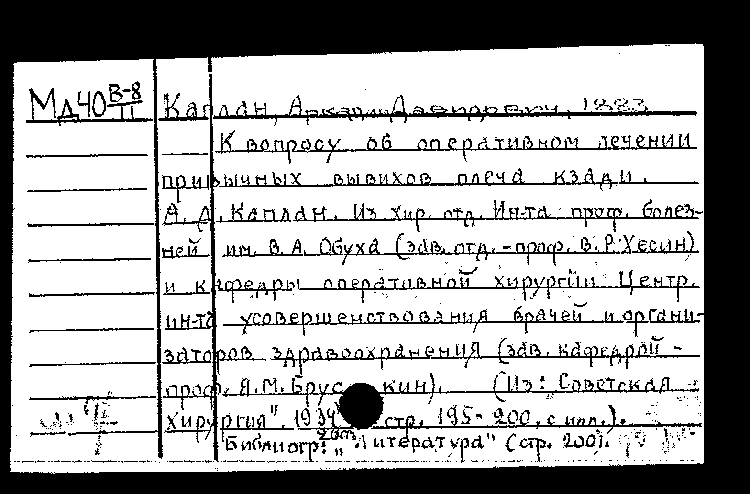 Мд40 В-8/II Каплан, Аркадий Давидович, 1883
К вопросу об оперативном лечении
привычных вывихов плеча кзади.
А. Д. Каплан. Из хир. отд. Ин-та проф. болез-
ней им. В. А. Обуха (зав. отд. - проф. В. Р. Хесин)
и кафедры оперативной хирургии Центр.
ин-та усовершенствования врачей и органи-
заторов здравоохранения (зав. кафедрой -
проф. Я. М. Брускин). (Из: Советская
хирургия", 1934 стр. 195-200, с илл.).
Библиогр: „Литература" (стр. 200).